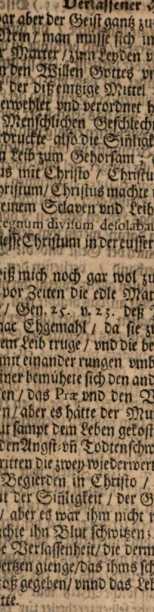 Verlassener
war aber der Geist gantz zu
Nein / man müsse sich in
Marter / zum Leyden v
n den Willen Gottes v
der diß eintzige Mittel
erwehlet vnd verordnet h
Menschlichen Geschlech
druckte also die Sinligk
n Leib zum Gehorsam
us mit Christo / Christu
hristum / Christus machte
einem Sclaven vnd Leib
regnum divisum desolab
liesse Christum in der eusser
eiß mich noch gar wol zu
vor Zeiten die edle Mar
/ Gen. 25. v. 23. deß
aac Ehgemahl / da sie z
em Leib truge / vnd die be
mit einander rungen vmb
iner bemühete sich den and
en / das Præ vnd den V
n / aber es hätte der Mu
ut sampt dem Leben gekost
den Angst- vñ Todtenschw
ritten die zwey widerwert
Begierden in Christo /
it der Sinligkeit / der G
/ aber es war ihm nicht
chte ihn Blut schwitzen
e Verlassenheit / die derm
ertzen gienge / das ihms sch
oß gegeben / vnnd das Leb
tte.